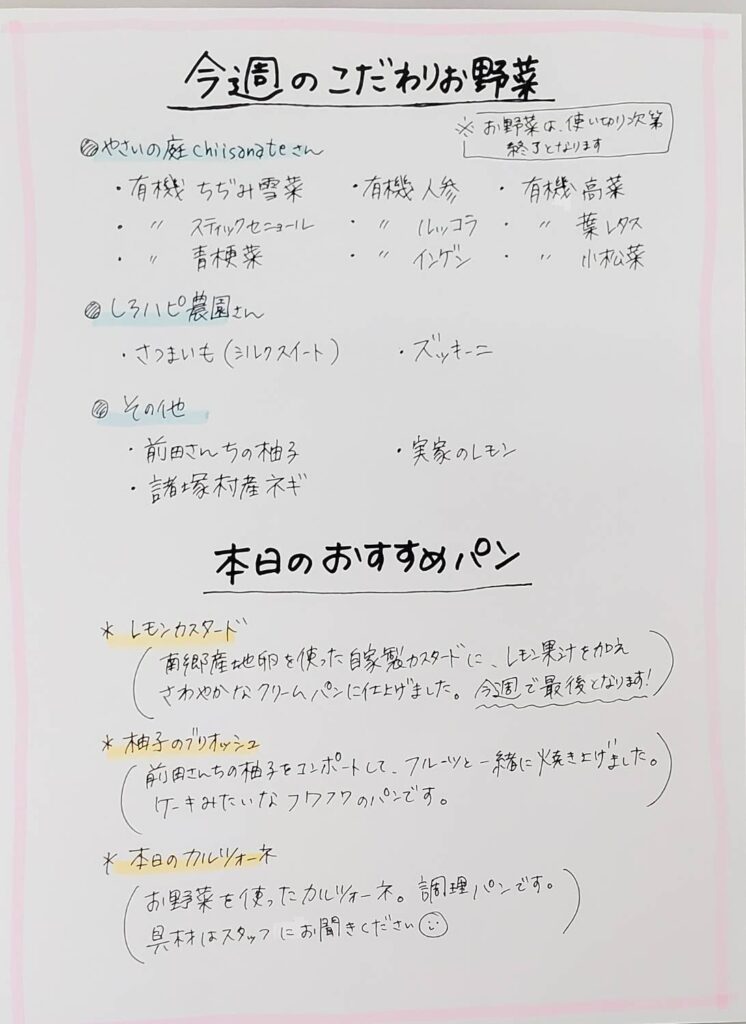 今週のこだわりお野菜
※ お野菜は、使い切り次第
終了となります
やさいの庭chiisanateさん
・有機 ちぢみ雪菜 ・有機 人参 ・有機 高菜
・〃 スティックセニョール ・〃 ルッコラ ・〃 葉レタス
・〃 青梗菜 ・〃 インゲン ・〃 小松菜
しろハピ農園さん
・さつまいも(シルクスイート) ・ズッキーニ
その他
・前田さんちの柚子 ・実家のレモン
・諸塚村産ネギ
本日のおすすめパン
* レモンカスタード
(南郷産地卵を使った自家製カスタードに、レモン果汁を加え
さわやかなクリームパンに仕上げました。今週で最後となります!)
* 柚子のブリオッシュ
(前田さんちの柚子をコンポートして、フルーツと一緒に焼き上げました。
ケーキみたいなフワフワのパンです。)
* 本日のカルツォーネ
(お野菜を使ったカルツォーネ。調理パンです。
具材はスタッフにお聞きください)